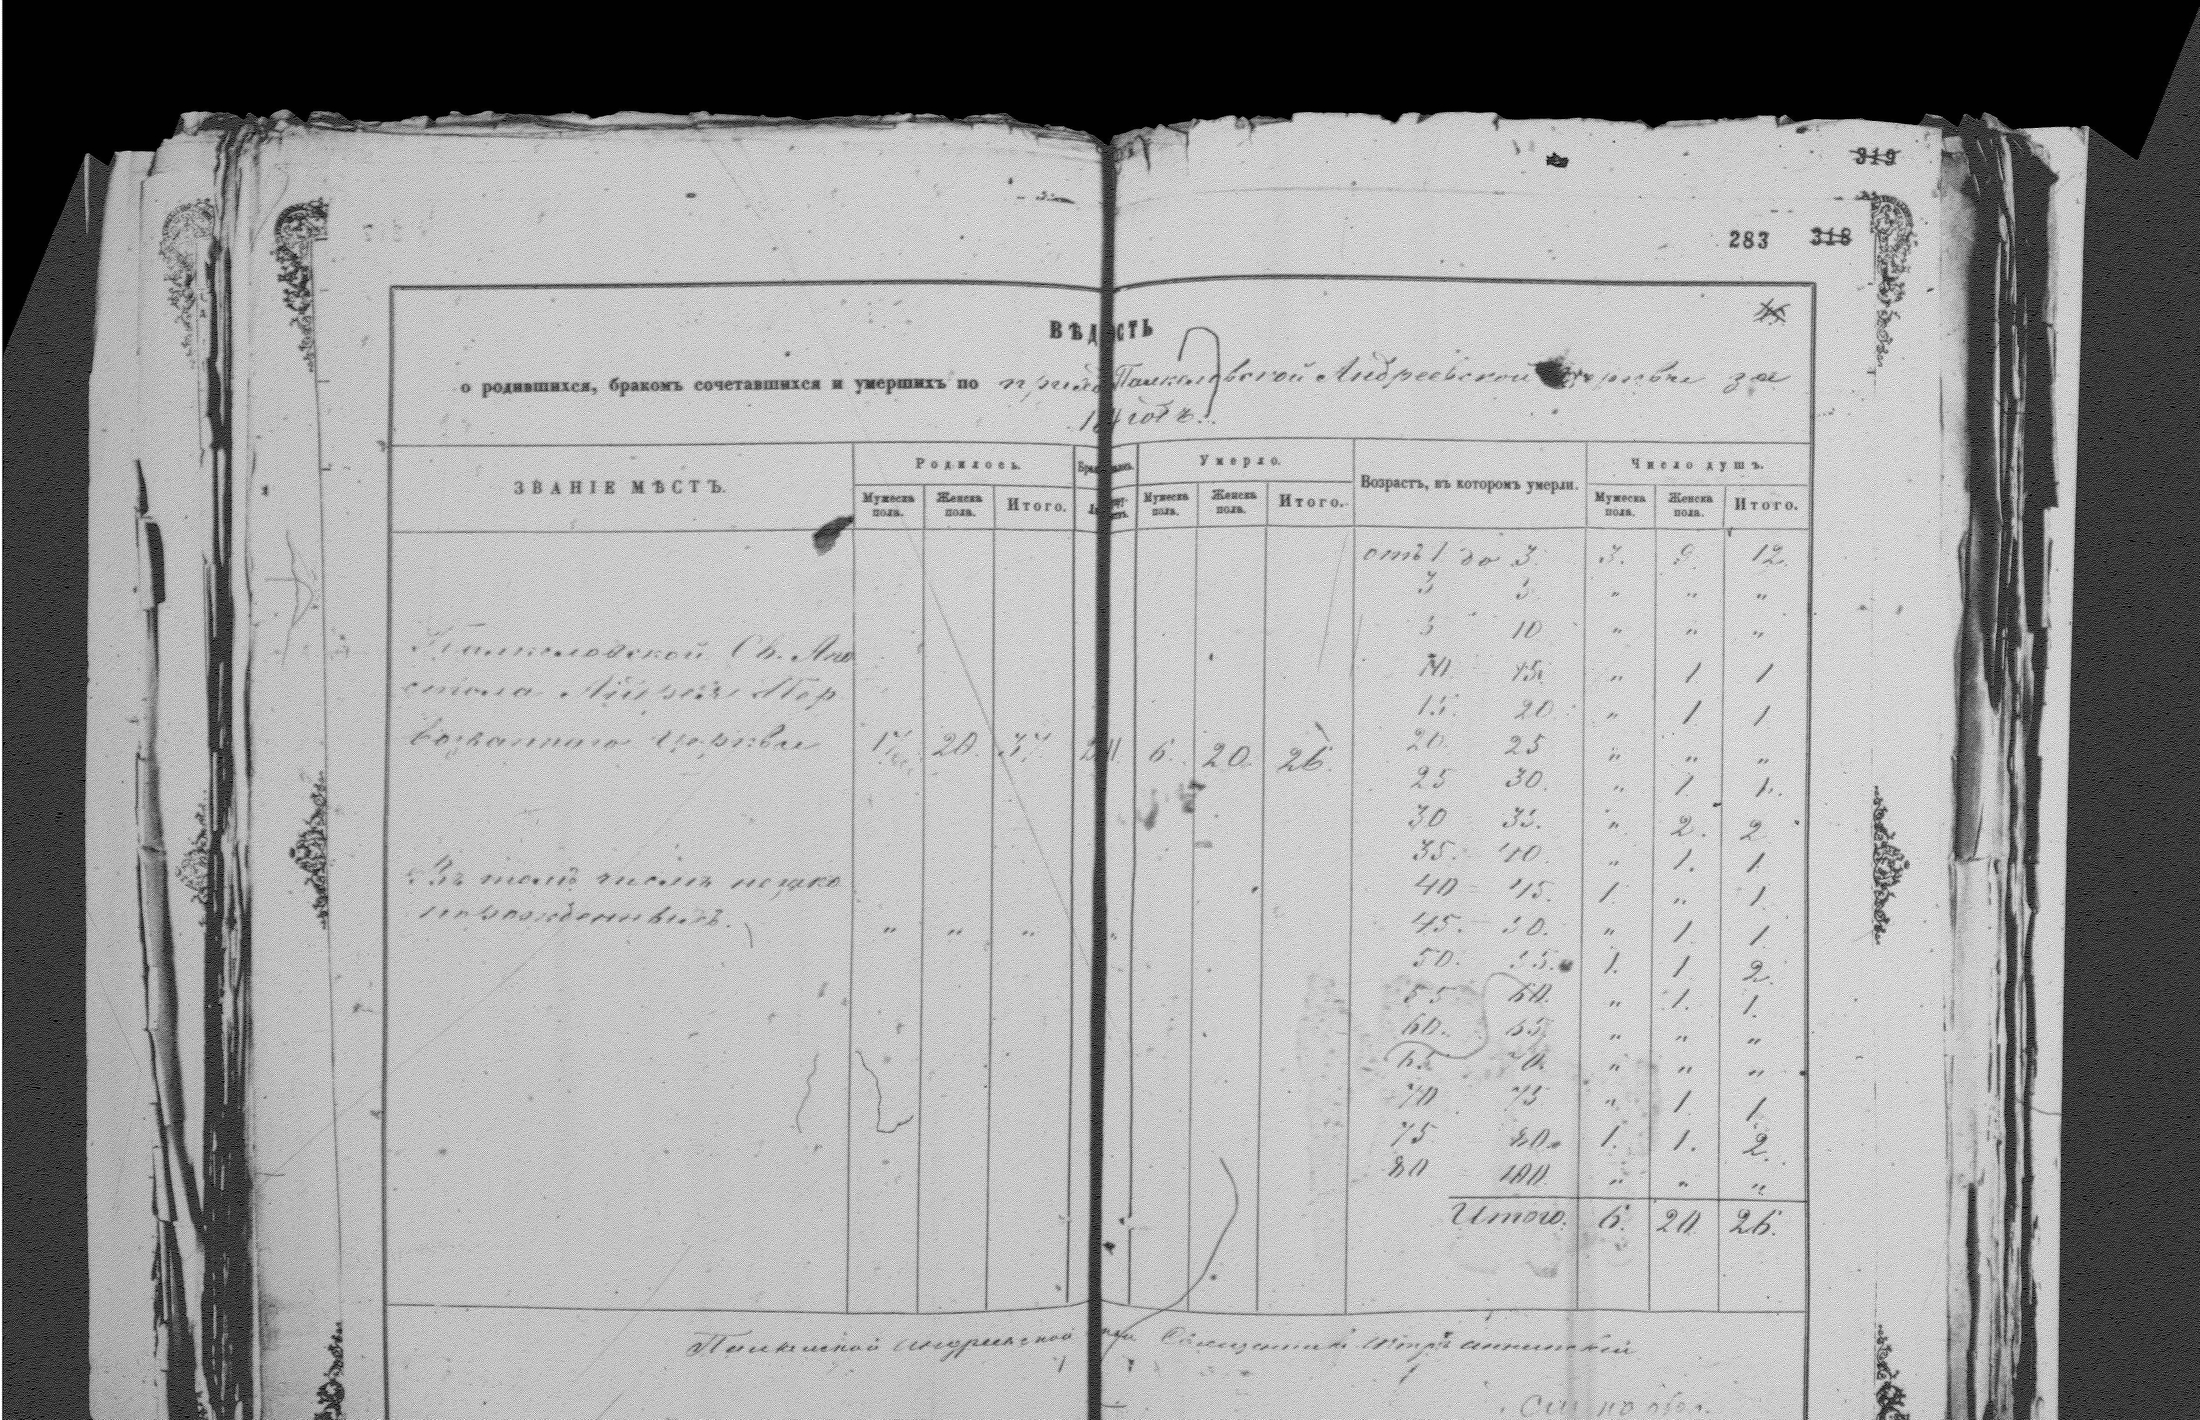 319
283 318
ВѢДОСТЬ
о родившихся, бракомъ сочетавшихся и умершихъ по Андреевской церкви за
годъ.
ЗВАНІЕ МѢСТЪ. Родилось. Умерло. Возрастъ, въ которомъ умерли. Число душъ.
Мужеска пола. Женска пола. Итого. Мужеска пола. Женска пола. Итого. Мужеска пола. Женска пола. Итого.
отъ 1 до 3. 3. 9. 12.
3 5. " " "
5 10 " " "
10. 15. " 1 1
15. 20. " 1 1
20. 25 " " "
25 30. " 1 1.
30 35. " 2. 2
35. 40. " 1. 1
40 45. 1. " 1.
45. 50. " 1 1
50. 55. 1. 1 2.
55 60. " 1. 1.
60. 65. " " "
65 70. " " "
70 75 " 1. 1.
75 80. 1. 1. 2.
80 100. " " "
Итого. 6. 20 26.
Св. Апо
стола Андрея Пер
возваннаго церкви 17 20. 37 6. 20. 26.
Въ томъ числѣ незако
норожденныхъ. " " " "
Священникъ Петръ